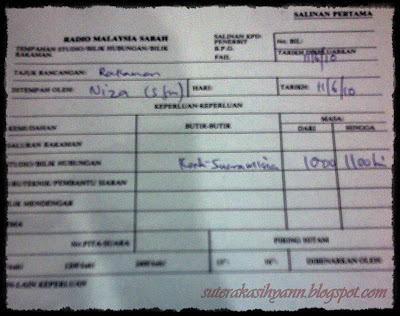 SALINAN PERTAMA
RADIO MALAYSIA SABAH
SALINAN KPD:
NO. BIL:
TEMPAHAN STUDIO/BILIK HUBUNGAN/BILIK
PENERBIT
RAKAMAN.
B.P.G.
TARIKH DIKELUARKAN
FAIL
11/6/10
TAJUK RANCANGAN: Rakaman
DITEMPAH OLEH: Niza (Sfm) HARI: TARIKH: 11/6/10
KEPERLUAN-KEPERLUAN
KEMUDAHAN BUTIR-BUTIR MASA:
DARI HINGGA
SALURAN RAKAMAN
STUDIO/BILIK HUBUNGAN 1000 1100
JURUTEKNIK/PEMBANTU SIARAN
BILIK MENDENGAR
PITA SUARA PIRING HITAM
DIBENARKAN OLEH:
LAIN-LAIN KEPERLUAN
suterakasihyann.blogspot.com